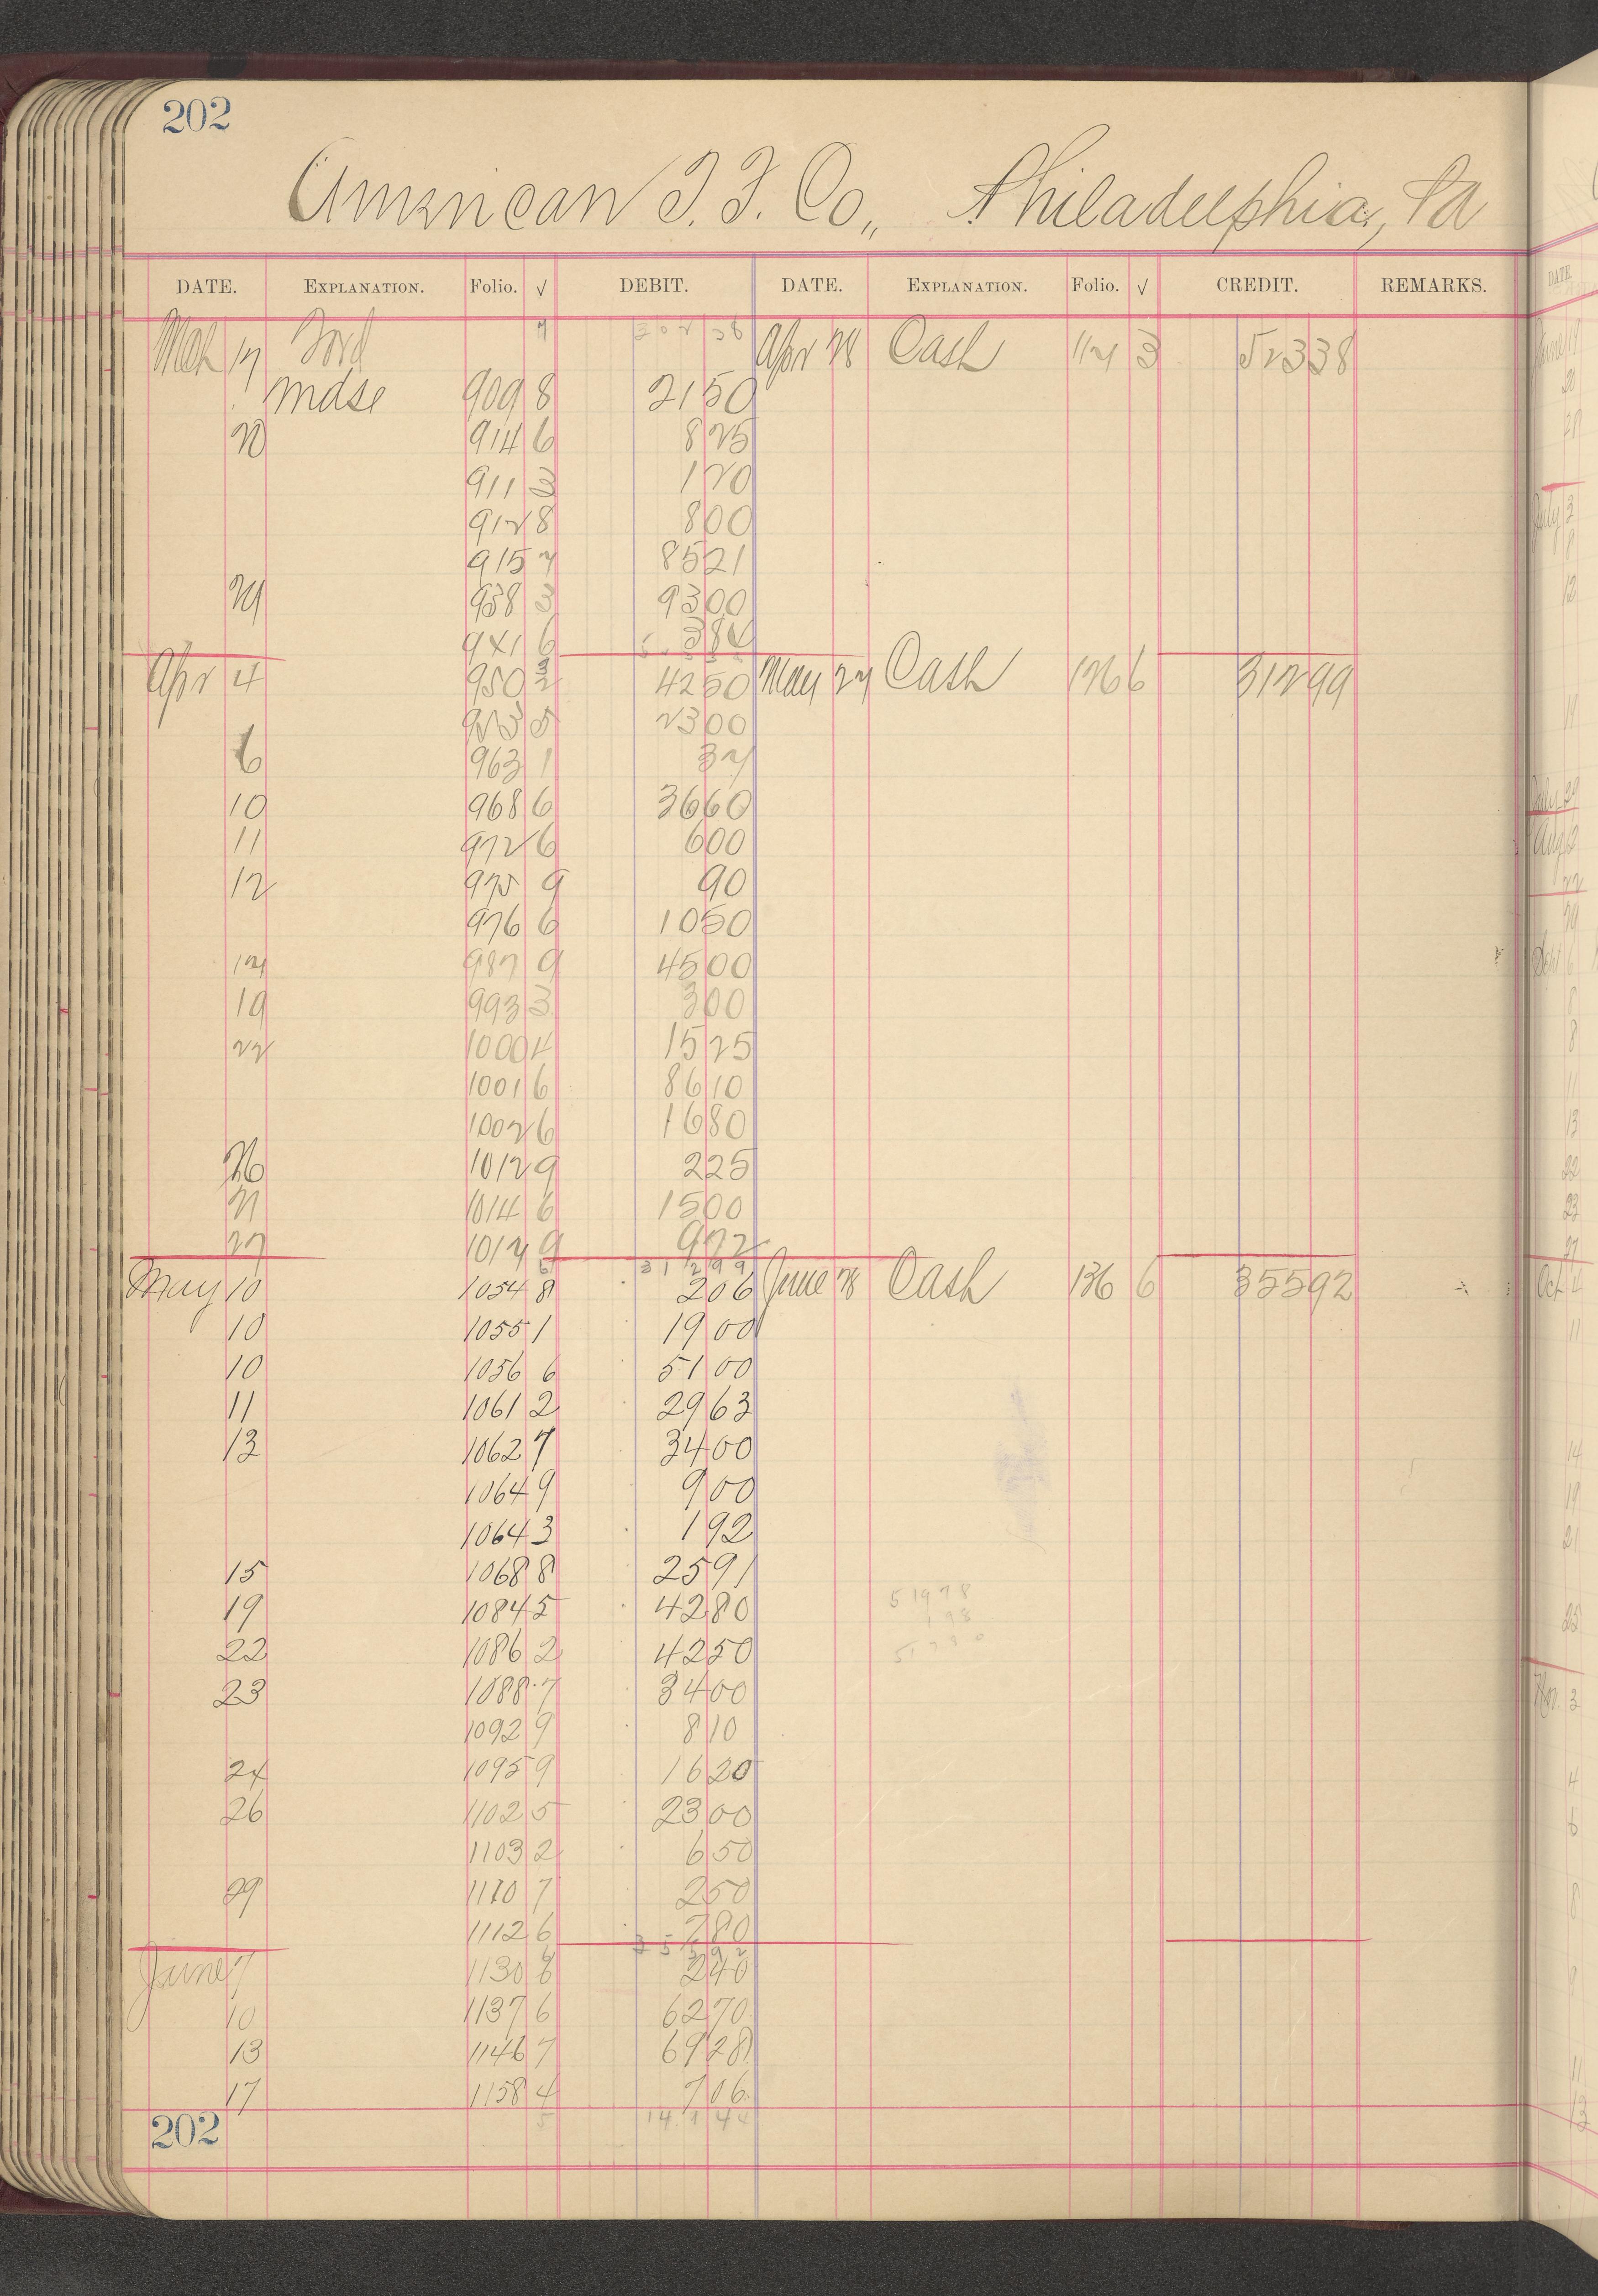 202
American I. F. Co., Philadelphia, Pa
DATE. EXPLANATION. Folio. √ DEBIT. DATE. EXPLANATION. Folio. √ CREDIT. REMARKS.
Mch 17 Ford 302 38 Apr 28 Cash 114 3 523 38
Mdse 909 8 21 50
20 914 6 8 25
911 3 1 20
912 8 8 00
915 7 85 21
29 938 3 93 00
941 6 3 84
Apr 4 950 42 50 May 27 Cash 126 6 312 99
953 5 23 00
6 963 1 37
10 968 6 36 60
11 972 6 6 00
12 975 9 90
976 6 10 50
14 987 9 45 00
19 993 3 3 00
22 1000 4 15 25
1001 6 86 10
1002 6 16 80
26 1012 9 2 25
1014 6 15 00
27 1017 9 9 72
312 99
May 10 1054 8 2 06 June 28 Cash 136 6 355 92
10 1055 1 19 00
10 1056 6 51 00
11 1061 2 29 63
13 1062 7 34 00
1064 9 9 00
1064 3 1 92
15 1068 8 25 91
19 1084 5 42 80
22 1086 2 42 50
23 1088 7 34 00
1092 9 8 10
24 1095 9 16 20
26 1102 5 23 00
1103 2 6 50
29 1110 7 2 50
1112 6 7 80
355 92
June 7 1130 8 2 40
10 1137 6 62 70
13 1146 7 69 28
17 1158 4 7 06
5 141 44
519 78
1 98
517 80
202